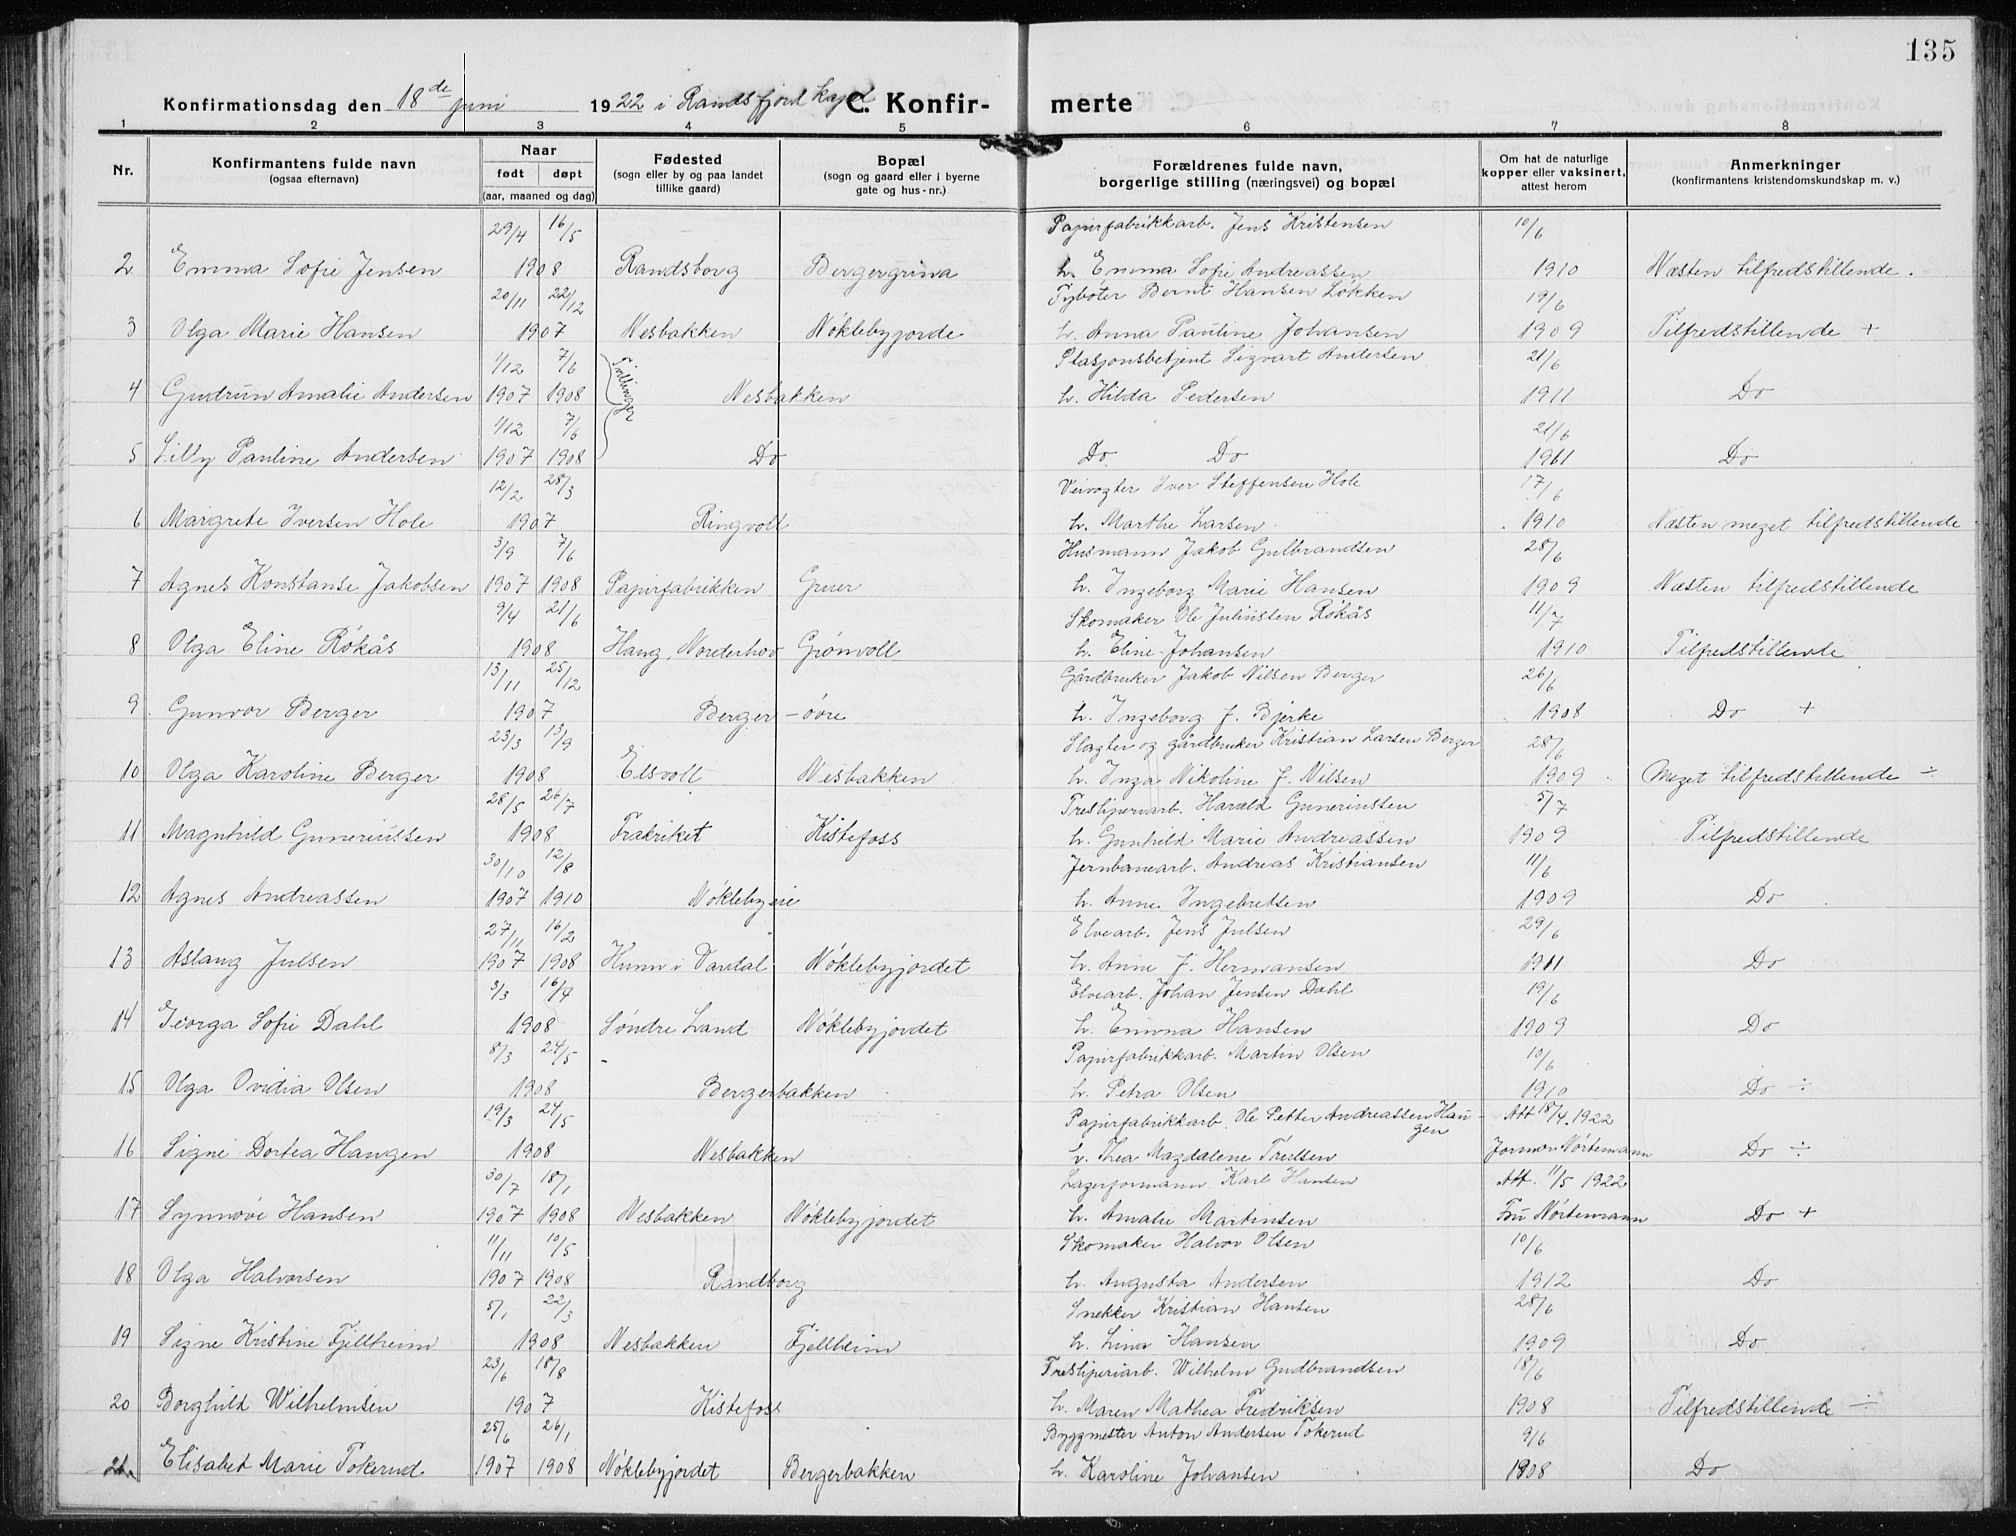 135
Konfirmationsdag den 18de juni 1922 i Randsfjord kapel C. Konfir- merte
1 2 3 4 5 6 7 8
Nr.
Konfirmantens fulde navn
(ogsaa efternavn)
Naar
født døpt
(aar, maaned og dag)
Fødested
(sogn eller by og paa landet
tillike gaard)
Bopæl
(sogn og gaard eller i byerne
gate og hus-nr.)
Forældrenes fulde navn,
borgerlige stilling (næringsvei) og bopæl
Om hat de naturlige
kopper eller vaksinert,
attest herom
Anmerkninger
(konfirmantens kristendomskundskap m. v.)
29/4 16/5 Papirfabrikkarb. Jens Kristensen 10/6
2 Emma Sofie Jensen 1908 Randsborg Bergergrina h. Emma Sofie Andreassen 1910 Næsten tilfredstillende.
20/11 22/12 Fybøter Bernt Hansen Løkken 19/6
3 Olga Marie Hansen 1907 Nesbakken Nøklebyjorde h. Anna Pauline Johansen 1909 Tilfredstillende +
1/12 7/6 Tvillinger Stasjonsbetjent Sigvart Andersen 21/6
4 Gudrun Amalie Andersen 1907 1908 Nesbakken h. Hilda Pedersen 1911 Do
1/12 7/6 21/6
5 Lilly Pauline Andersen 1907 1908 Do Do Do 1911 Do
12/2 28/3 Veivogter Iver Steffensen Hole 17/6
6 Margrete Iversen Hole 1907 Ringvoll h. Marthe Larsen 1910 Næsten meget tilfredstillende
3/9 7/6 Husmann Jakob Gulbrandsen 28/6
7 Agnes Konstanse Jakobsen 1907 1908 Papirfabrikken Gruer h. Ingeborg Marie Hansen 1909 Næsten tilfredstillende
9/4 21/6 Skomaker Ole Juliussen Røkås 11/7
8 Olga Eline Røkås 1908 Haug, Norderhov Grønvoll h. Eline Johansen 1910 Tilfredstillende
13/11 25/12 Gårdbruker Jakob Nilsen Berger 26/6
9 Gunvor Berger 1907 Berger - øvre h. Ingeborg f. Bjerke 1908 Do +
23/3 13/9 Slagter og gårdbruker Kristian Larsen Berger 28/6
10 Olga Karoline Berger 1908 Elsvoll Nesbakken h. Inga Nikoline f. Nilsen 1909 Meget tilfredstillende ÷
28/5 26/7 Tresliperiarb. Harald Guneriussen 5/7
11 Magnhild Guneriussen 1908 Frakriket Kistefoss h. Gunhild Marie Andreassen 1909 Tilfredstillende
30/10 12/8 Jernbanearb. Andreas Kristiansen 11/6
12 Agnes Andreassen 1907 1910 Nøklebyeie h. Anne Ingebretsen 1909 Do
27/11 16/2 Elvearb. Jens Julsen 29/6
13 Aslaug Julsen 1907 1908 Hunn i Vardal Nøklebyjordet h. Anne f. Hermansen 1911 Do
3/3 16/4 Elvearb. Johan Jensen Dahl 19/6
14 Georga Sofie Dahl 1908 Søndre Land Nøklebyjordet h. Emma Hansen 1909 Do
8/3 24/5 Papirfabrikkarb. Martin Olsen 10/6
15 Olga Ovidia Olsen 1908 Bergerbakken h. Petra Olsen 1910 Do ÷
19/3 24/5 Papirfabrikkarb. Ole Petter Andreassen Hau- Att 18/4. 1922
gen
16 Signe Dortea Haugen 1908 Nesbakken h. Thea Magdalene Trulsen Jormor Nørtemann Do ÷
30/7 18/1 Lagerformann Karl Hansen Att. 11/5 1922
17 Synnøve Hansen 1907 1908 Nesbakken Nøklebyjordet h. Amalie Martinsen Fru Nørtemann Do +
11/11 10/5 Skomaker Halvor Olsen 10/6
18 Olga Halvorsen 1907 1908 Randborg h. Augusta Andersen 1912 Do
5/1 22/3 Snekker Kristian Hansen 28/6
19 Signe Kristine Fjellheim 1908 Nesbakken Fjellheim h. Lina Hansen 1909 Do
23/6 18/8 Tresliperiarb. Wilhelm Gudbrandsen 18/6
20 Borghild Wilhelmsen 1907 Kistefoss h. Maren Mathea Fredriksen 1908 Tilfredstillende ÷
25/6 26/1 Byggmester Anton Andersen Tokerud 9/6
21. Elisabet Marie Tokerud 1907 1908 Nøklebyjordet Bergerbakken h. Karoline Johansen 1908 Do